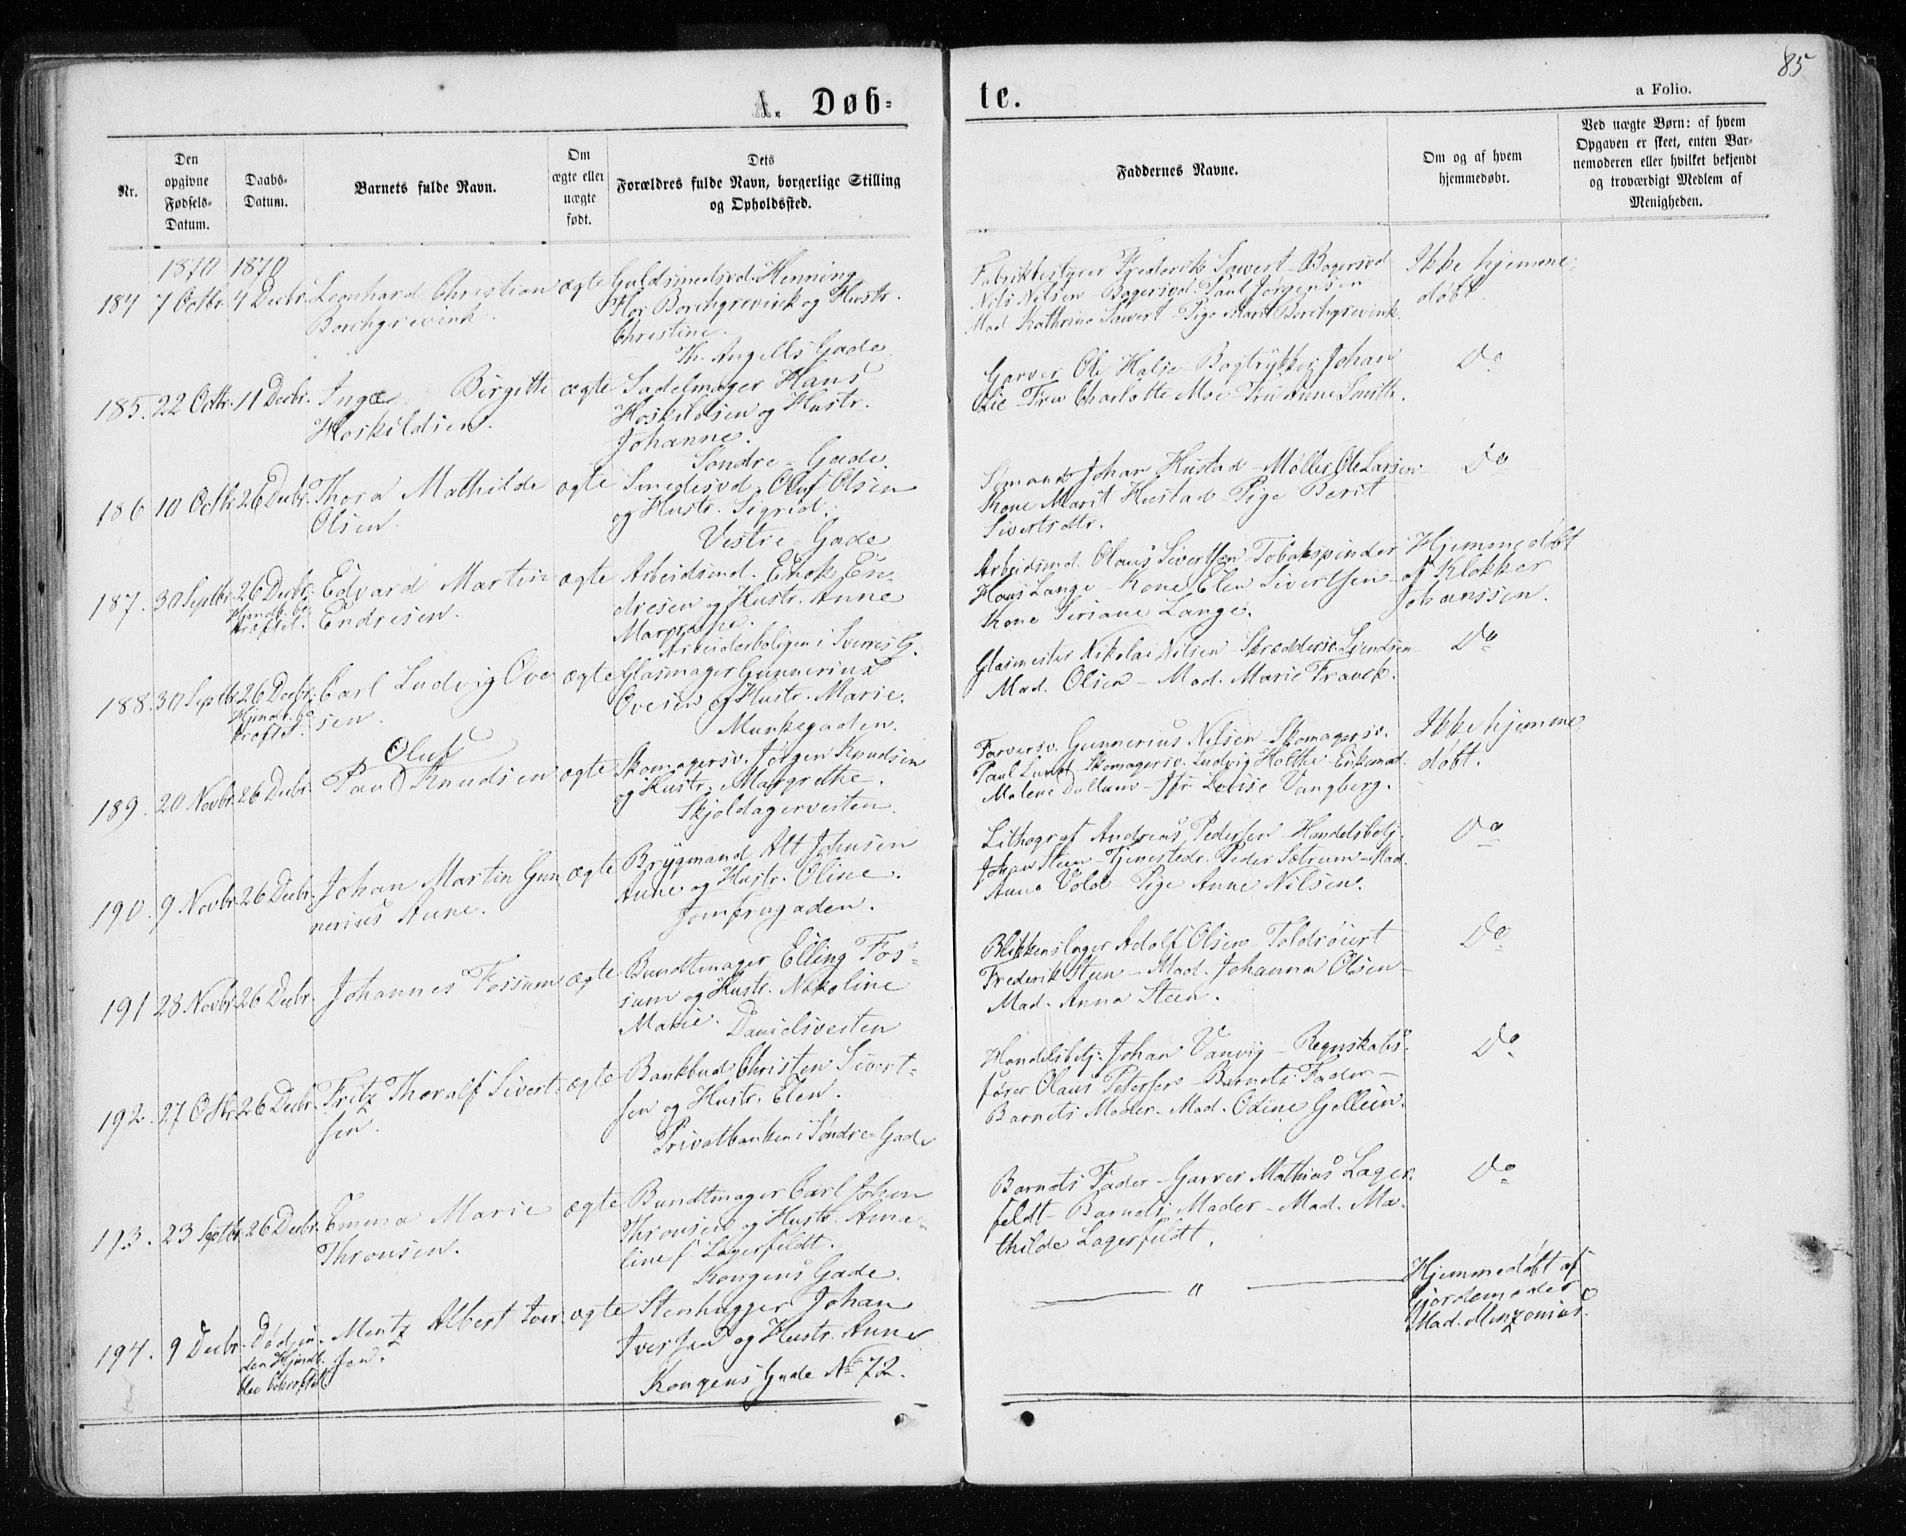 85
A. Døb=
te.
a Folio.
Nr.
Den
opgivne
Fødsels-
Datum.
Daabs-
Datum.
Barnets fulde Navn.
Om
ægte eller
uægte
født.
Dets
Forældres fulde Navn, borgerlige Stilling
og Opholdssted.
Faddernes Navne.
Om og af hvem
hjemmedøbt.
Ved uægte Børn: af hvem
Opgaven er skeet, enten Bar-
nemoderen eller hvilket bekjendt
og troværdigt Medlem af
Menigheden.
1870 1870
184 7 Octbr. 4 Decbr. Leonhard Christian
Borchgrevink.
ægte
Guldsmedsvd. Henning
Flor Borchgrevink og Hustr.
Christine.
Th. Angells Gade
Fabrikbestyrer Frederik Sawert - Bagersvd
Nils Nilsen - Bagersvd. Paul Jörgensen
Mad. Kathrine Sawert - Pige Marit Borchgrevink.
Ikke hjemme-
døbt.
185. 22 Octbr. 11 Decbr. Inga Birgitte
Hoskildsen.
ægte
Sadelmager Hans
Hoskildsen og Hustr.
Johanne.
Söndre-Gade.
Garver Ole Halse - Bogtrykker Johan
Lie - Fru Charlotte Moe - Fru Anne Smith.
Do
186 10 Octbr. 26 Decbr. Thora Mathilde
Olsen.
ægte
Smedesvd. Oluf Olsen
og Hustr. Sigrid.
Vestre-Gade
Sömand Johan Hustad - Møller Ole Larsen
Kone Marit Hustad - Pige Berit
Sivertsdtr.
Do
187. 30 Septbr. 26 Decbr.
Hjmdb. be-
kræftet.
Edvard Martin
Endresen.
ægte
Arbeidsmd. Enok En-
dresen og Hustr. Anne
Margrethe.
Arbeiderboligen i Sverres G.
Arbeidsmd. Olaus Sivertsen - Tobakspinder
Hans Lange - Kone Elen Sivertsen
Kone Seriane Lange.
Hjemmedøbt
af Klokker
Johanssen.
188. 30 Septbr. 26 Decbr.
Hjmdb. be-
kræftet.
Carl Ludvig Ove-
sen.
ægte
Glasmager Gunnerius
Ovesen og Hustr. Marie.
Munkegaden.
Glasmester Nikolai Nilsen - Skrædders. Svendsen
Mad. Olsen - Mad. Marie Franck.
Do
189. 20 Novbr. 26 Decbr. Oluf
Paul Knudsen
ægte
Skomagersv. Jörgen Knudsen
og Hustr. Margrethe.
Skjoldagerveiten.
Farversv. Gunnerius Nilsen - Skomagersv.
Paul Lund - Skomagersv. Ludvig Holthe - Enkemad.
Malene Dallum - Jfr. Lovise Vangberg.
Ikke hjemme
døbt.
190. 9 Novbr. 26 Decbr. Johan Martin Gun-
nerius Aune.
ægte
Brygmand Att Johnsen
Aune og Hustr. Oline.
Jomfrugaden.
Lithograf Andreas Pedersen - Handelsbetj.
Johan Steen - Tjenestedr. Peder Sætrum - Mad.
Anna Vold - Pige Anne Nilsen.
Do
191 28 Novbr. 26 Decbr. Johannes Fossum
ægte
Bundtmager Elling Fos-
sum og Hustr. Nikoline
Marie. Danielsveiten
Blikkenslager Adolf Olsen - Toldröiert
Frederik Steen - Mad. Johanna Olsen
Mad. Anna Steen.
Do
192. 27 Octbr. 26 Decbr. Fritz Thoralf Sivert-
sen.
ægte
Bankbud Christen Sivert-
sen og Hustr. Elen.
Privatbanken i Søndre Gade
Handelsbetj. Johan Vanvig - Regnskabs-
fører Olaus Petersen - Barnets Fader -
Barnets Moder - Mad. Odine Gellein.
Do
193. 23 Septbr. 26 Decbr. Emma Marie
Thronsen.
ægte
Bundtmager Carl Johan
Thronsen og Hustr. Anna-
line f. Lagerfeldt.
Kongens Gade.
Barnets Fader - Garver Mathias Lager-
feldt - Barnets Moder - Mad. Ma-
thilde Lagerfeldt.
Do
194. 9 Decbr. Död in-
den Hjmdb.
blev bekræftet.
Mentz Albert Iver-
sen.
ægte
Stenhugger Johan
Iversen og Hustr. Anne
Kongens Gade No 72.
"
Hjemmedøbt af
Gjordemoder
Mad. Menzonius.